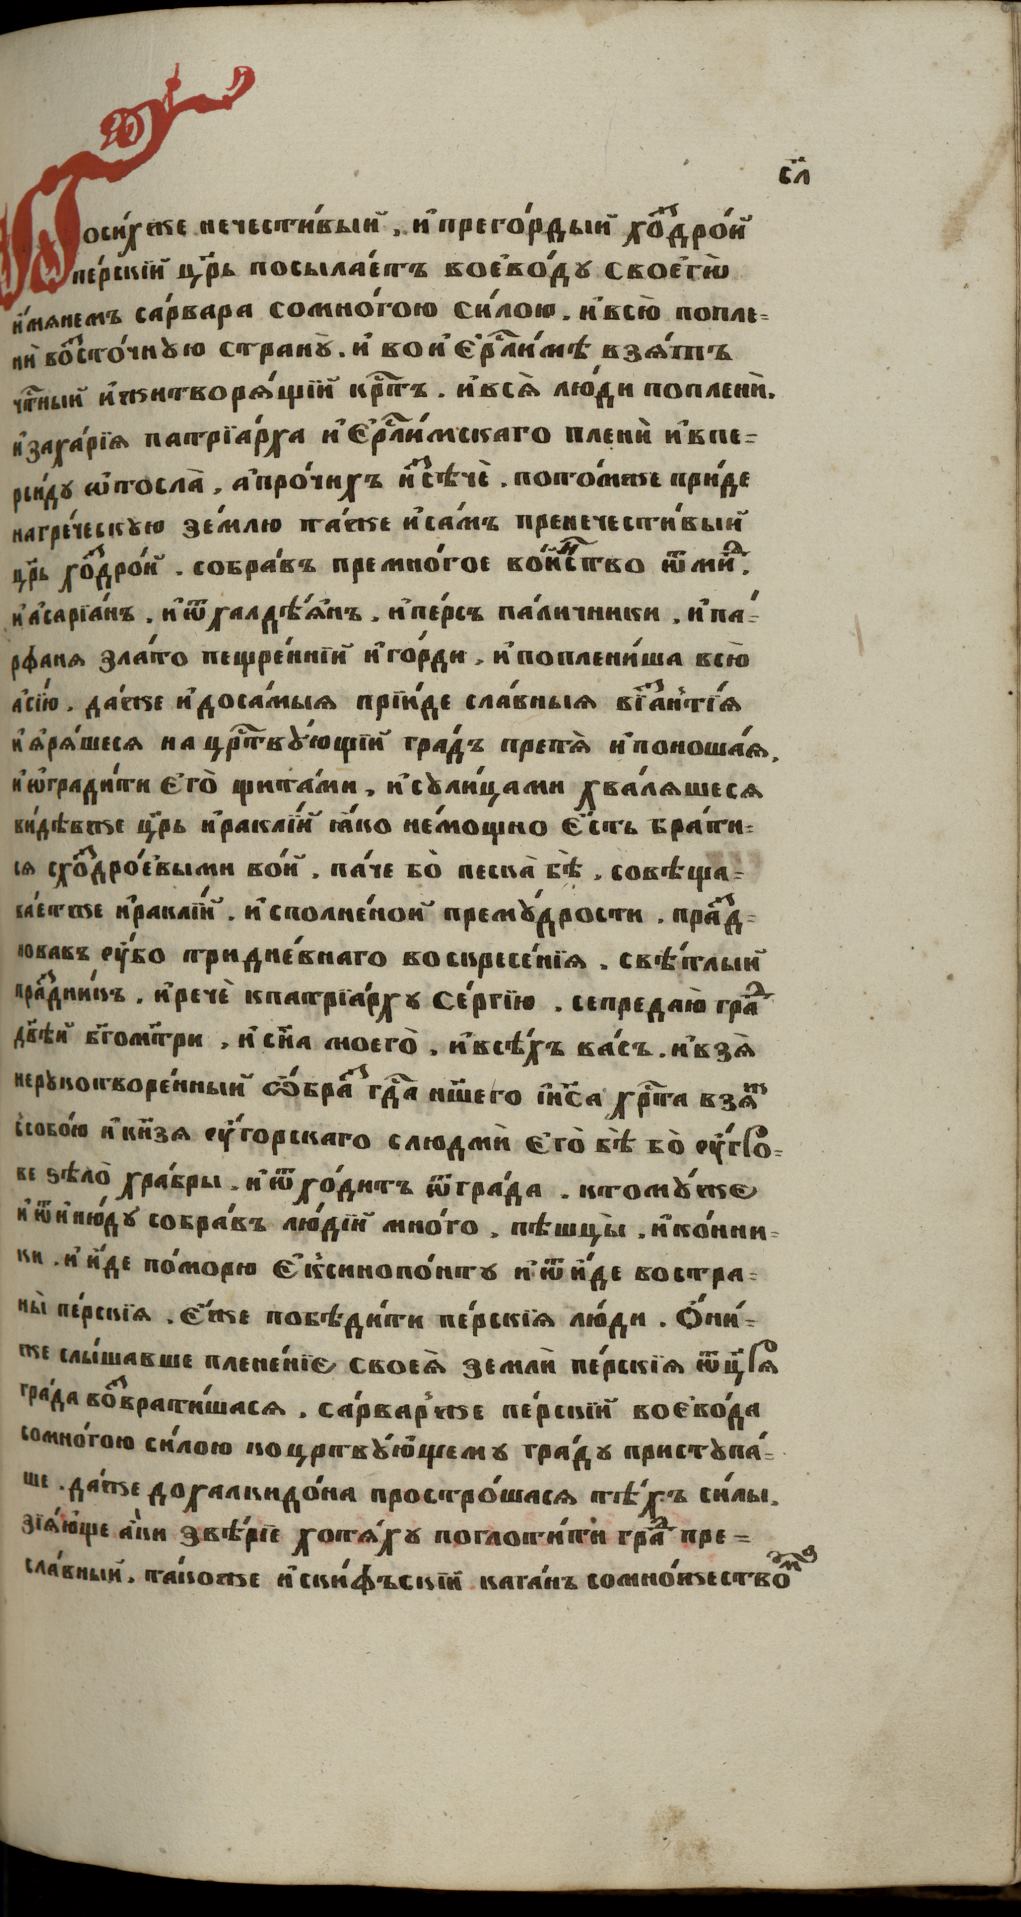 сл҃
Ѿосихже нечести́вый, и҆ прего́рдый хо́здро́й
пе́рскїй цр҃ь посыла́етъ воево́ду своего̀
и҆́мянемъ са́рвара сомно́гою си́лою. и҆ всю̀ попле-
нѝ восто́чную странꙋ̀. и҆ во и҆ Єрл҃и́мѣ взя́тъ
чтⷭ҇ный и҆ животворя́щїй крⷭ҇тъ. и҆ вся̀ лю́ди попленѝ.
и҆ заха́рїя патрїа́рха и҆ Єрл҃и́мскаго пленѝ и҆ впе-
рси́ду ѿпосла̀, а҆ про́чихъ и҆сѣчѐ. пото́мже прїи́де
нагре́ческую зе́млю па́че и҆ са́мъ пренечести́вый
цр҃ь хо́здро́й. собра́въ премно́гое во́инство ѿ ми́дъ.
и҆ а҆сарїа́нъ. и҆ ѿ халдѣ́янъ. и҆ пе́рсъ па́личники, и҆ па́-
рфаня зла́то пещре́ннїй и҆ го́рди. и҆ поплени́ша всю̀
а҆сі́ю. да́же и҆ досамыя прїи́де сла́вныя візанті́я
и҆ я҆ря́шеся на црⷭ҇твꙋ́ющїй гра́дъ претя̀ и҆ поноша́я,
и҆ ѡ҆гради́ти Єго̀ щита́ми, и҆ сꙋли́цами хваля́шеся
ви́дѣвже цр҃ь и҆ракли́й ꙗ҆́ко немо́щно Є҆́сть бра́ти-
ся схоздро́евыми во́й. па́че бо̀ песка̀ бѣ̀. совѣща-
ва́етже и҆ракли́й. и҆сполне́ной премꙋ́дрости. пра́зд-
новавъ ᲂу҆́бо тридне́внаго воскресе́нїя. свѣ́тлый
пра́здникъ. и҆ речѐ кпатрїа́рху Се́ргїю. се предаю̀ гра́дъ
дв҃ѣй бг҃ома́три, и҆ сн҃а моего̀, и҆ всѣ́хъ ва́съ. и҆ взя̀
нерукотворе́нный ѡ҆́браз гдⷭ҇а нш҃его і҆и҃са хрⷭ҇та взя́т
ссобо́ю и҆ кн҃зя ᲂу҆́горскаго слюдмѝ Єго̀ бѣ̀ бо̀ ᲂу҆́гро-
ве ѕѣло̀ хра́бры. и҆ ѿхо́дитъ ѿгра́да. ктомꙋ́же
и҆ ѿи҆нюдꙋ̀ собра́въ лю́дїй мно́го, пѣшцы̀, и҆ ко́нни-
ки. и҆ и҆́де помо́рю Є҆ѯинопо́нту и҆ ѿи҆́де востра-
ны̀ пе́рскїя. Є҆́же побѣди́ти пе́рскїя лю́ди. Ѻ҆ни́-
же слы́шавше плене́нїе своея̀ землѝ пе́рскїя ѿ цр҃я
гра́да возврати́шася. са́рварже пе́рскїй воево́да
сомно́гою си́лою коцрⷭ҇твꙋ́ющему гра́ду пристꙋпа́-
ше. да́же до халкидо́на простро́шася тѣ́хъ си́лы.
зїя́юще а҆́ки звѣ́рїе хотя́ху поглоти́ти гра́дъ пре-
сла́вный. та́коже и҆ ски́фъскїй кага́нъ сомно́жество́мъ